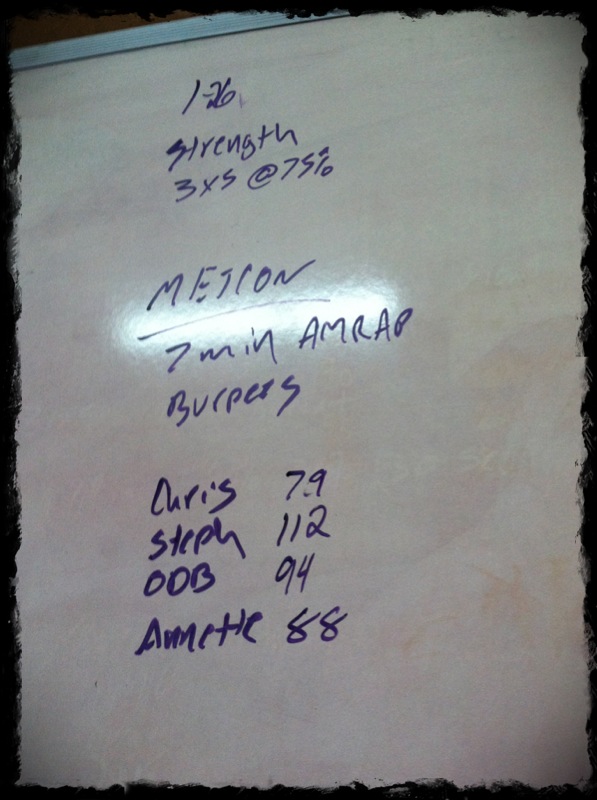 1-26
Strength
3x5 @ 75%
METCON
7 min AMRAP
Burpees
Chris 79
Steph 112
ODB 94
Annette 88